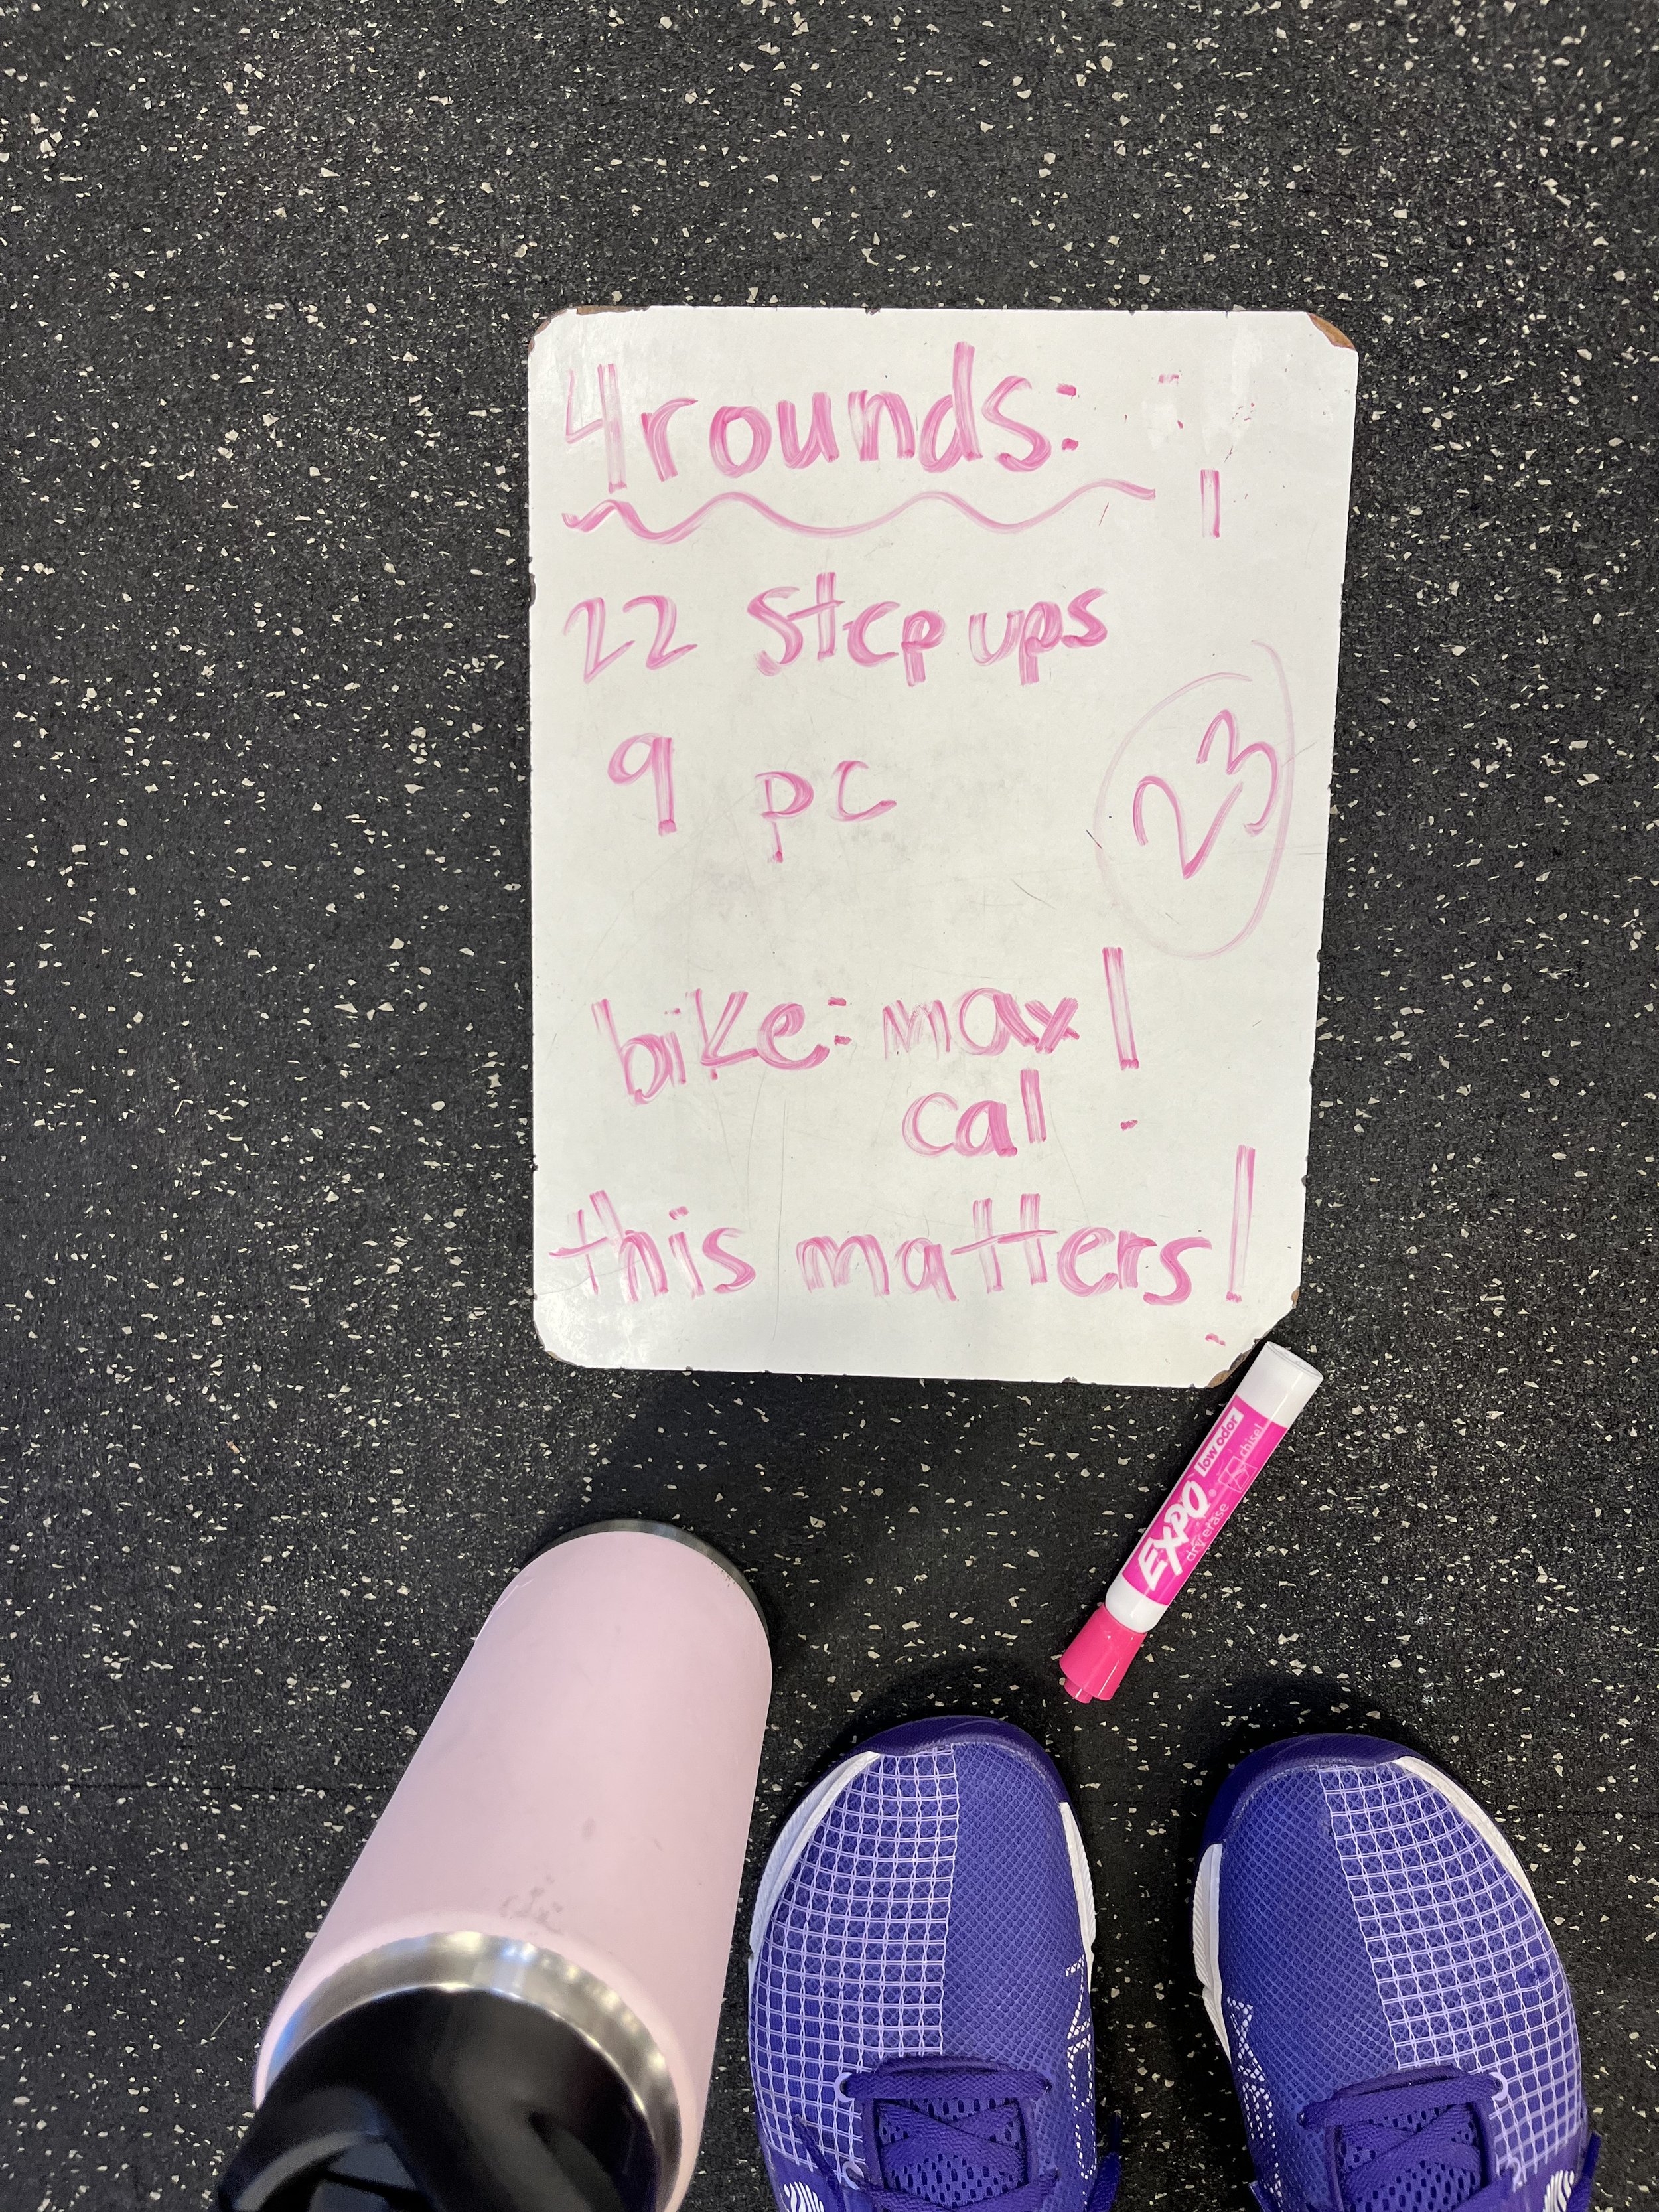 4 rounds:
22 Step ups
9 pc
23
bike: max!
cal
this matters!
EXPO
low odor
dry erase
chisel